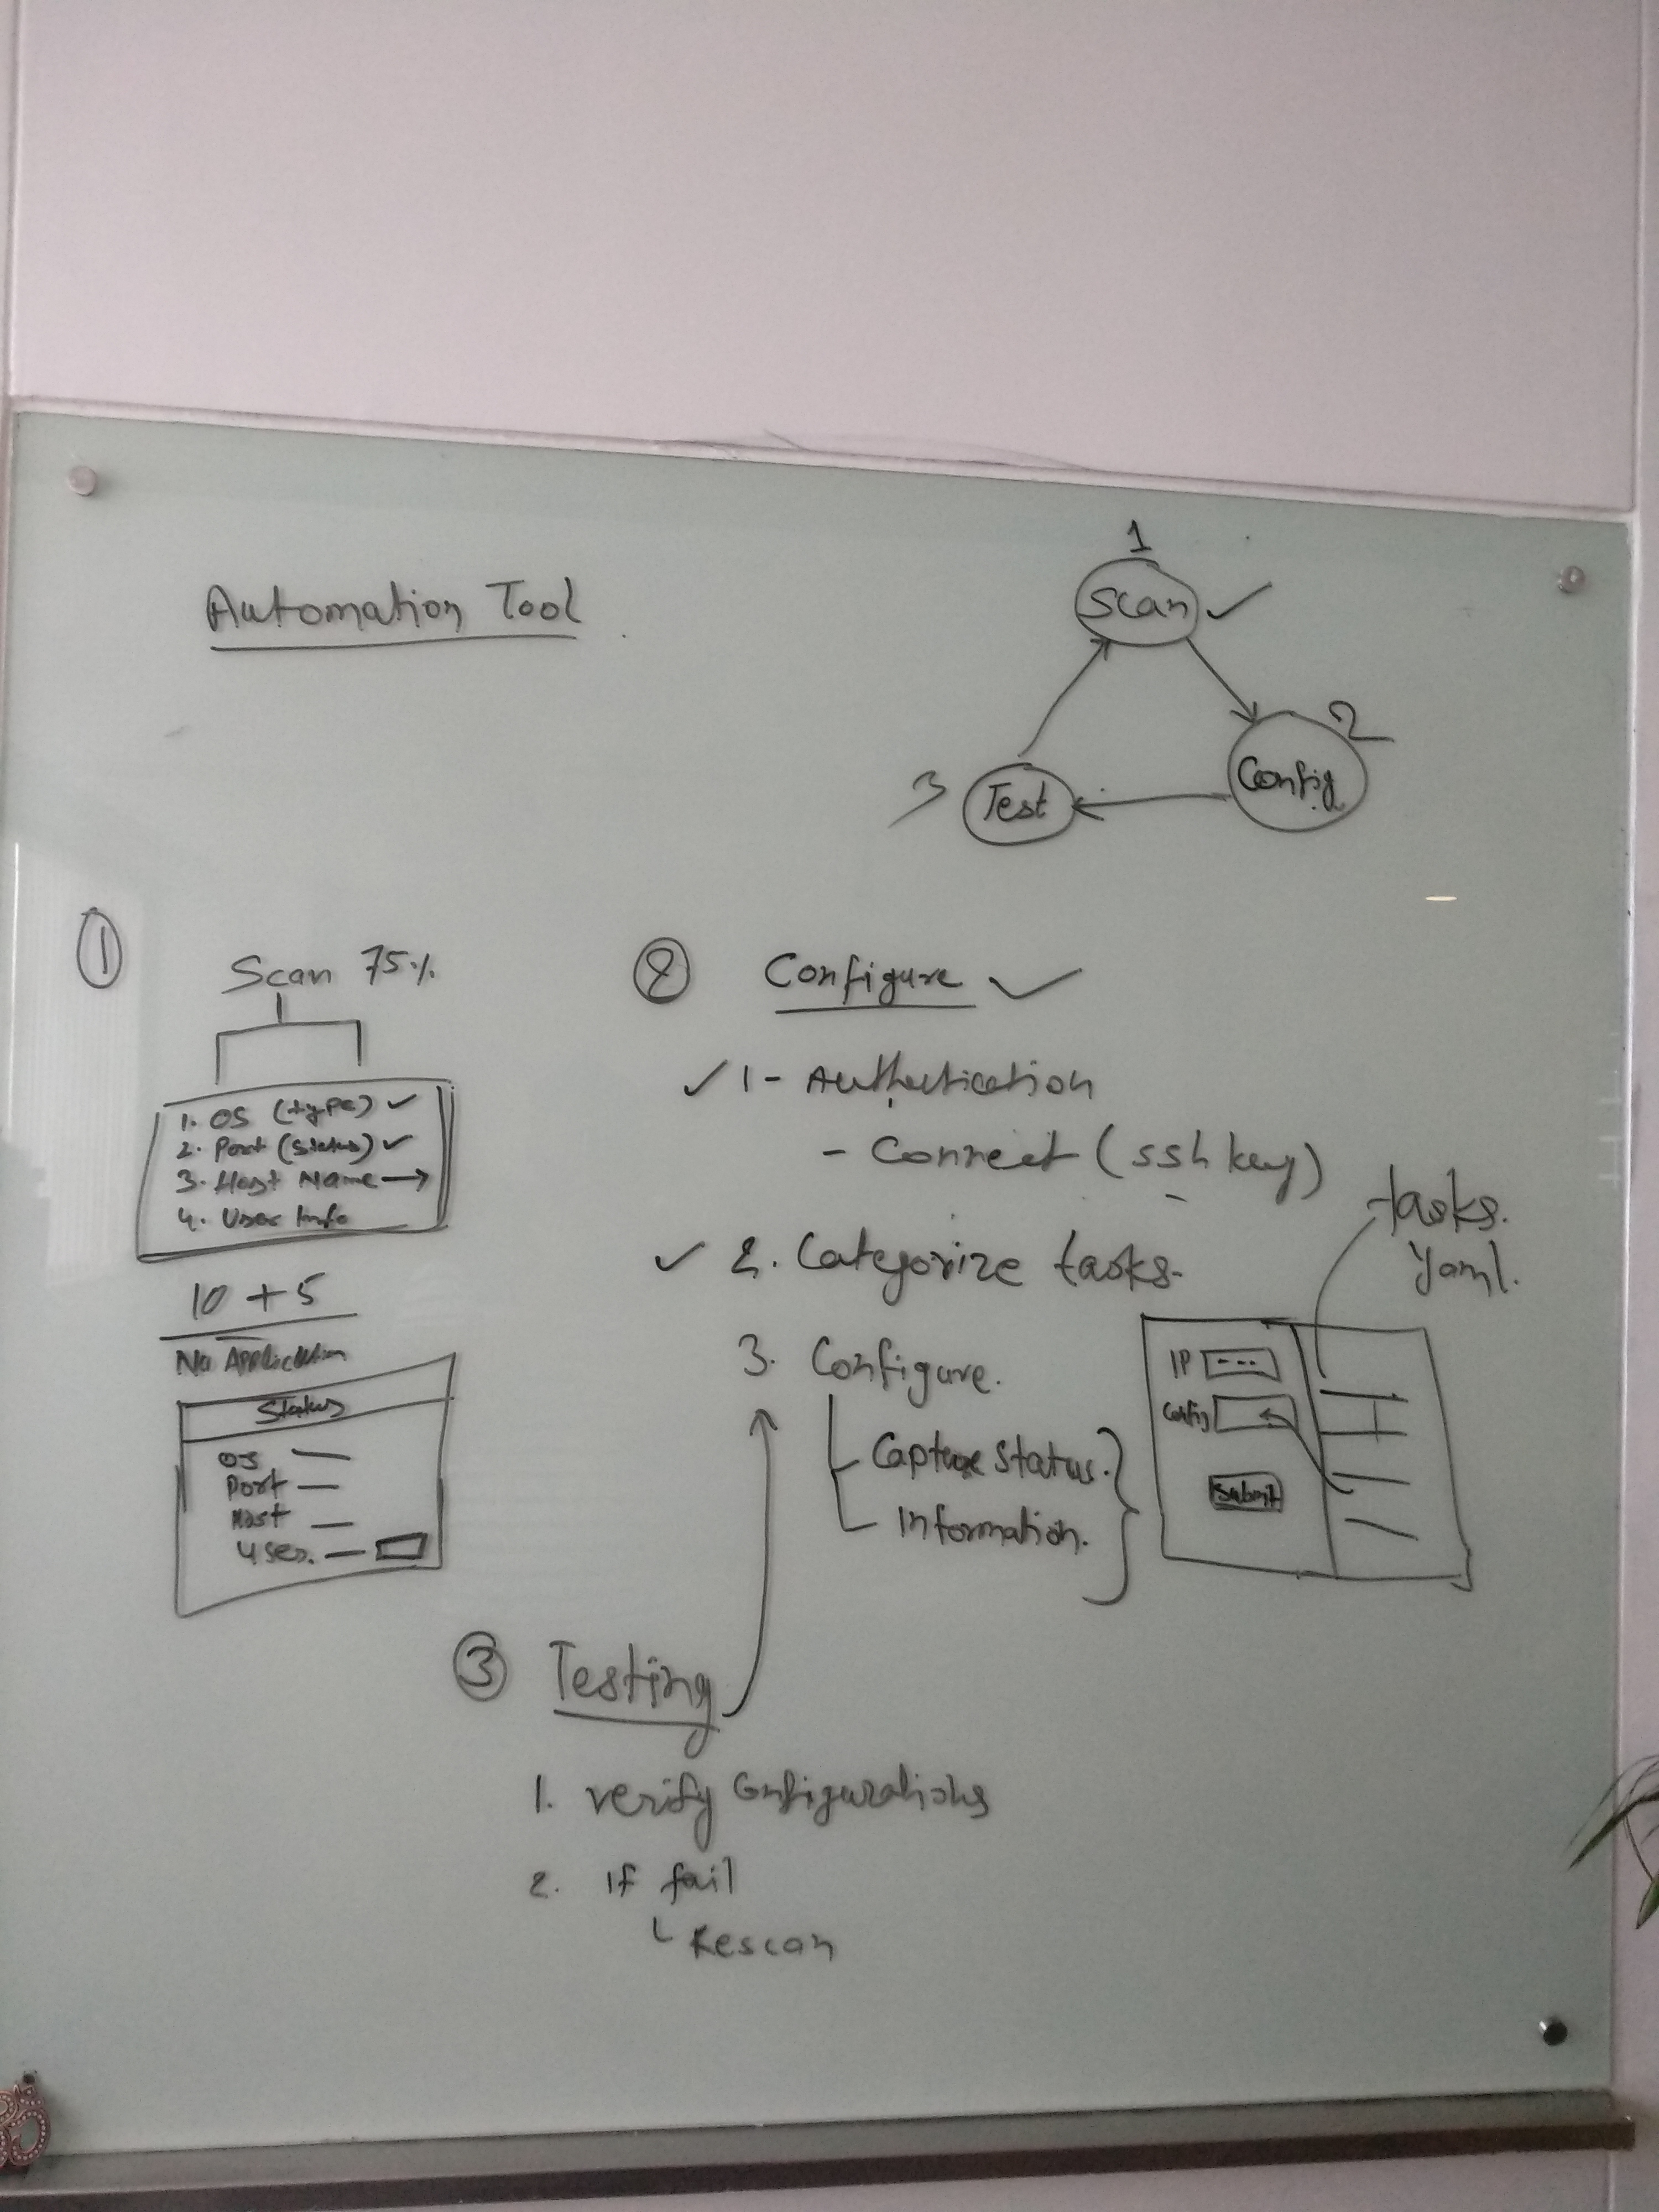 Automation Tool
1
Scan ✓
2
Config
3
Test
① Scan 75%
1. OS (type) ✓
2. Port (status) ✓
3. Host Name →
4. User Info
10 + 5
No Application
Status
OS —
Port —
Host —
User. —
② Configure ✓
✓ 1 - Authentication
- Connect (ssh key)
✓ 2. Categorize tasks.
3. Configure.
Capture Status.
Information.
tasks.
Yaml.
IP ---
Config
Submit
③ Testing
1. verify Configurations
2. If fail
Rescan